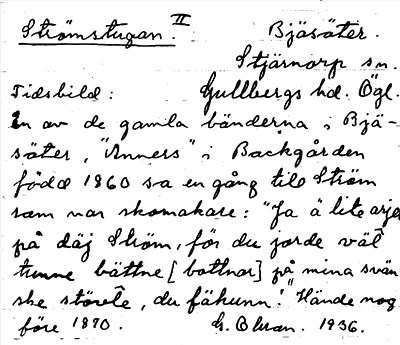 Strömstugan. II
Bjäsäter.
Stjärnorp sn.
Tidsbild: Gullbergs hd. Ögl.
En av de gamla bönderna i Bjä-
säter, "Anners" i Backgården
född 1860 sa en gång till Ström
som var skomakare: "Ja ä lite arje
på däj Ström, för du jorde väl
tunne bättne [bottnar] på mina svän
ske stövle, du fähunn!" Hände nog
före 1890. G. Ohman. 1936.